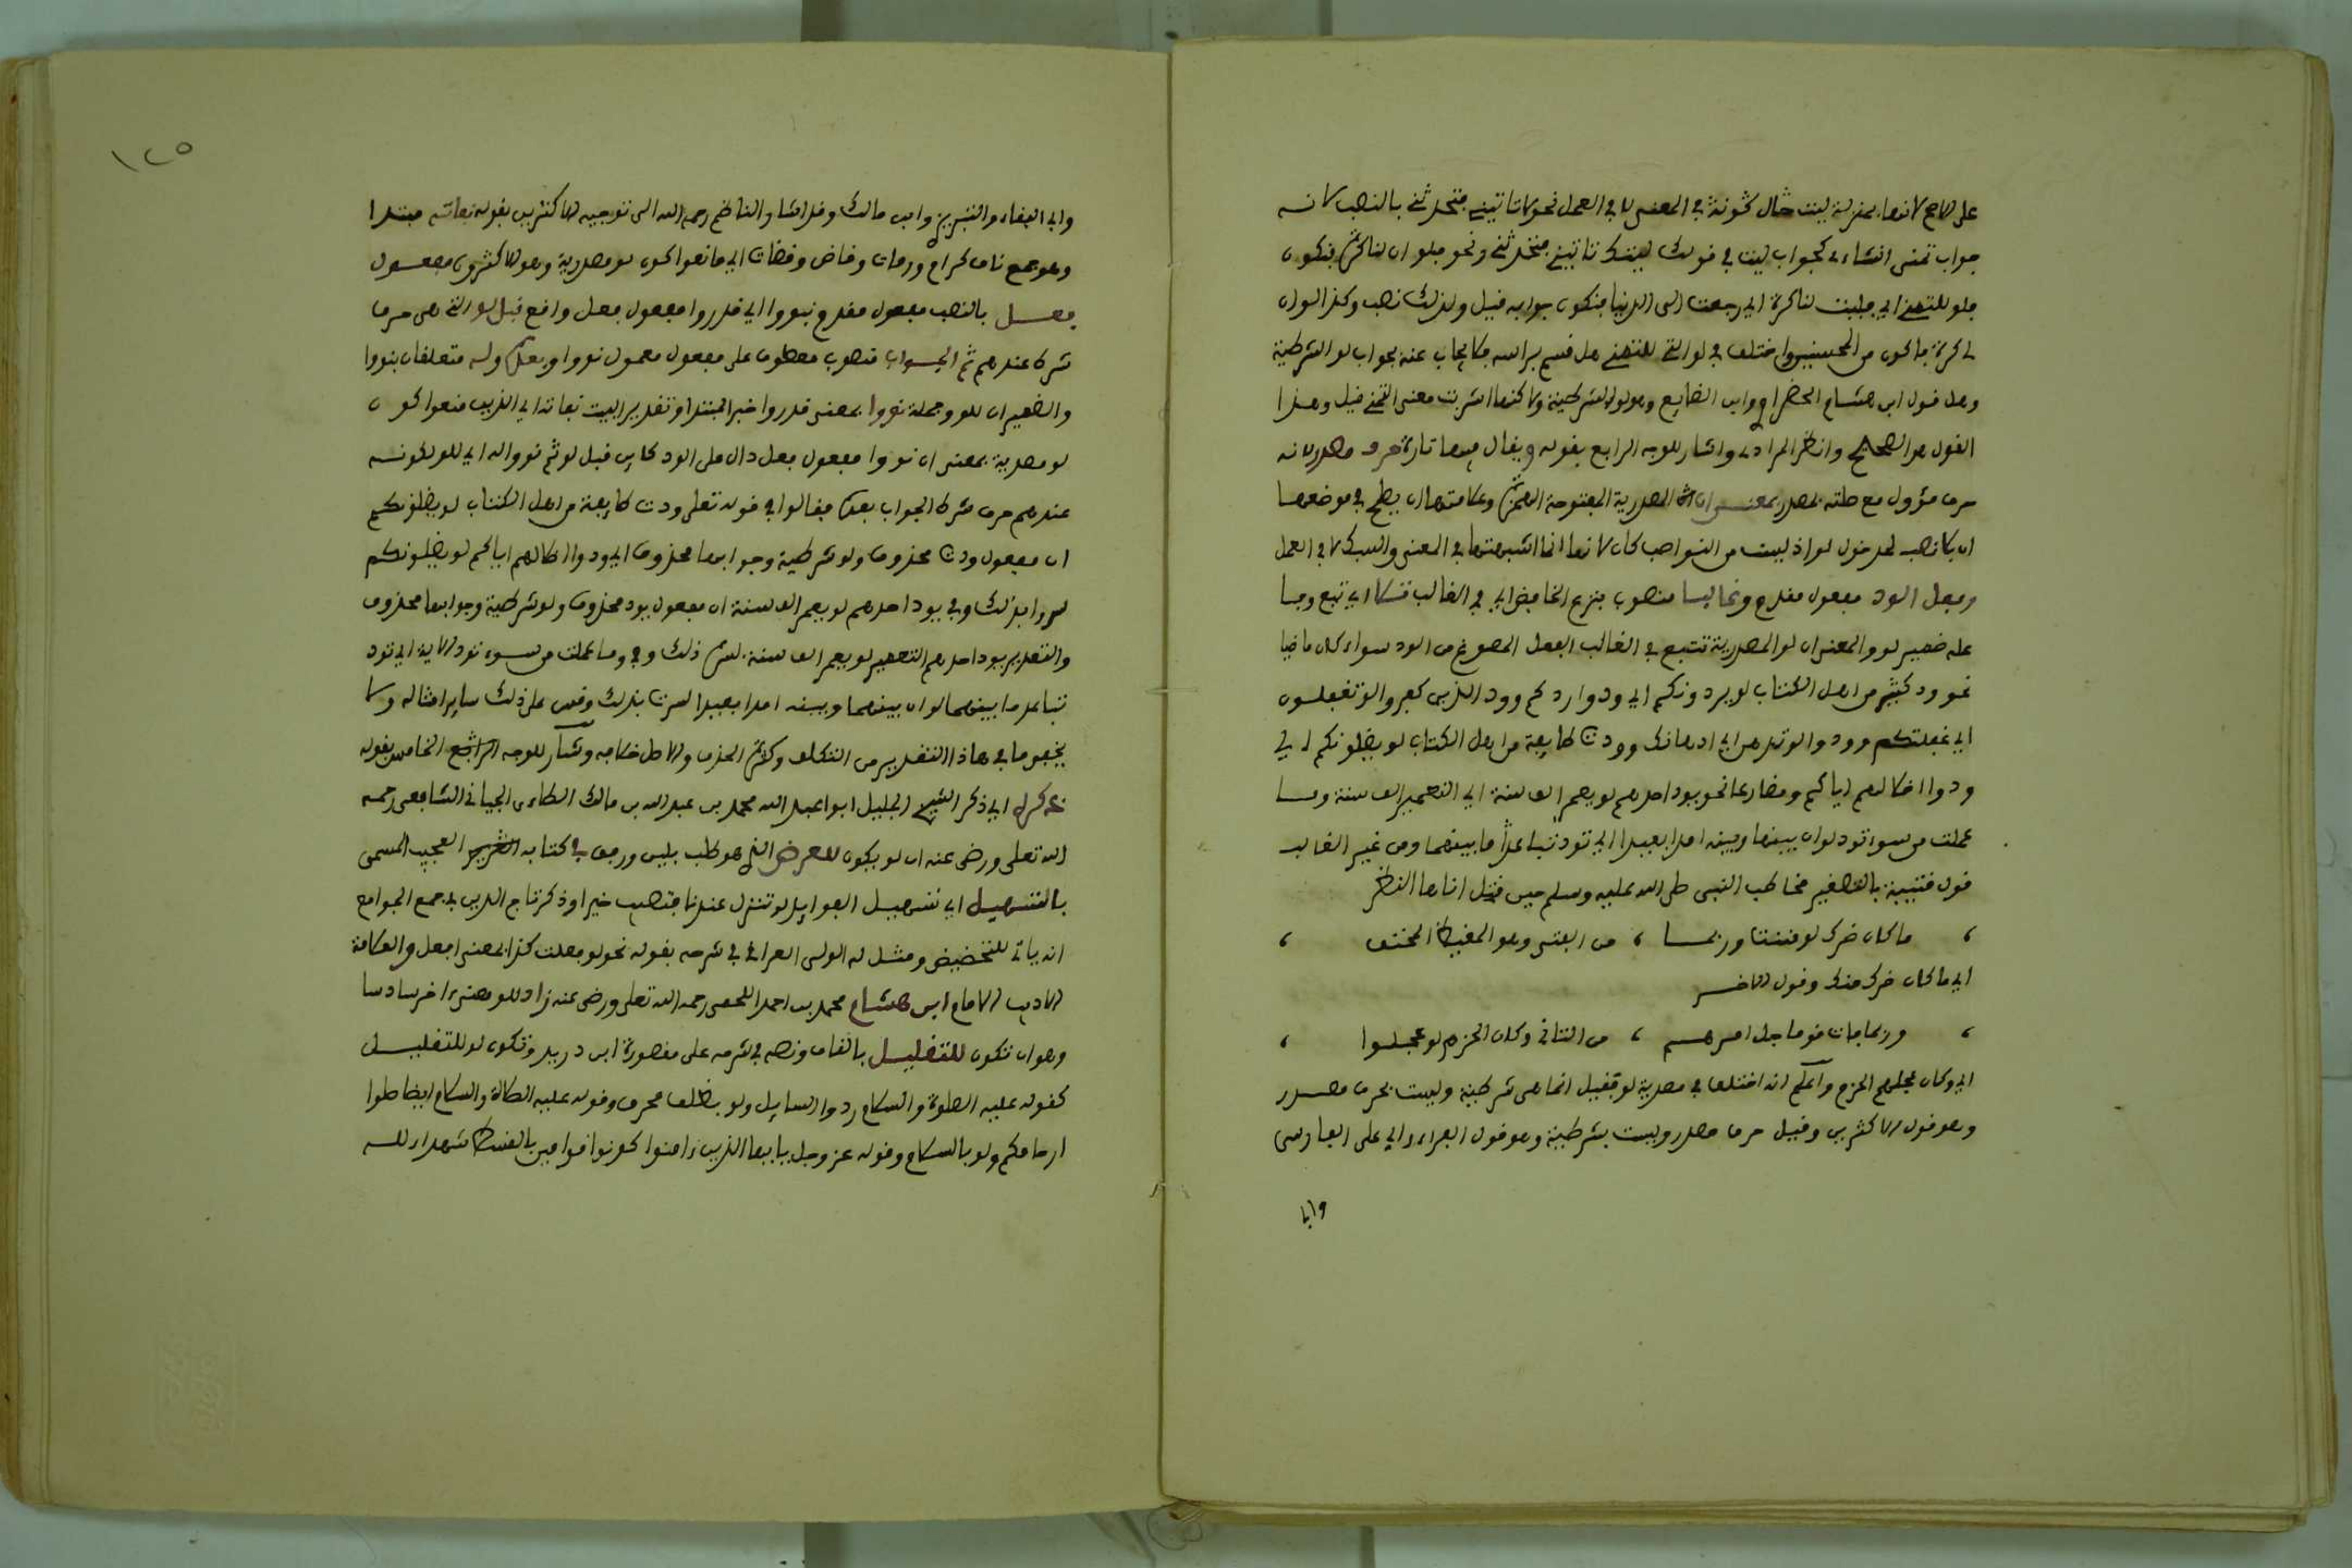 على الاصح لانها بمنزلة ليت حال كونه في المعنى لا في العمل نحو لاتاتيني فتحدثني بالنصب لانه
جواب تمنى انشاء كجواب ليت في قولك ليتك تاتيني فتحدثني ونحو فلو ان لنا كرة فنكون
فلو للتمني اي فليت لنا كرة اي رجعت الى الدنيا فنكون جوابه قيل ولذلك نصب وكذا لو ان
لي كرة فاكون من المحسنين واختلف في لو التي للتمني هل قسم براسه فلا يجاب عنه بجواب لو الشرطية
وهل قول ابن هشام الخضراوي وابن الضايع وهو لو الشرطية ولاكنها اشربت معنى التمني قيل وهذا
القول هو الصحيح وانظر المرادي واشار للوجه الرابع بقوله ويقال فيها تارة حرف مصدر لانه
حرف مؤول مع صلته بمصدر بمعنى ان المصدرية المفتوحة الهمزة وعلامتها ان يصلح في موضعها
ان بلا نصب لمدخول لو اذ ليست من النواصب كان لانها انما اشبهتها في المعنى والسبك لا في العمل
وفعل الود مفعول مقدم وغالبا منصوب بنزع الخافض اي في الغالب تلا اي تبع وفيا
عله ضمير لو والمعنى ان لو المصدرية تتبع في الغالب الفعل المصوغ من الود سواء كان ماضيا
نحو ود كثير من اهل الكتاب لو يردونكم اي ودوا ردكم وود الذين كفروا لو تغفلون
اي غفلتكم وودوا لو تدهن اي ادهانك وودت طايفة من اهل الكتاب لو يضلونكم اي
ودوا اضلالهم اياكم ومضارعا نحو يود احدهم لو يعمر الف سنة اي التعمير الف سنة وما
عملت من سوء تود لو ان بينها وبينه امدا بعيدا اي تود تباعد ما بينهما ومن غير الغالب
قول قتيبة بالتصغير مخاطب النبي صلى الله عليه وسلم حين قتل اخاها النظر
ما كان ضرك لو مننت وربما ، من الفتى وهو المغيظ المحنق
اي ما كان ضرك منك وقول الاخر
وربما فات قوما جل امرهم ، من التانى وكان الحزم لو عجلوا
اي وكان عجلهم الحزم واعلم انه اختلف في مصدرية لو فقيل انما هى شرطية وليست بحرف مصدر
وهو قول الاكثرين وقيل حرف مصدر وليست بشرطية وهو قول الفراء وابي على الفارسى
وابا
١٢٥
وابي البقاء والتبريزي وابن مالك وقد اشار الناظم رحمه الله الى توجيه الاكثرين بقوله نفاته مبتدا
وهو جمع ناف كرام ورمات وقاض وقضات اي مانعوا كون لو مصدرية وهو الاكثرون مفعول
فعل بالنصب مفعول مقدم نووا اي قدروا مفعول فعل واقع قبل لو التي هى حرف
شرط عندهم ثم الجواب منصوب معطوف على مفعول معمول نووا وبعد وله متعلقان بنووا
والضميران للو وجملة نووا بمعنى قدروا خبر المبتدا وتقدير البيت نفاته اي الذين منعوا كون
لو مصدرية بمعنى ان نووا مفعول فعل دال على الود كاين قبل لو ثم نووا له اي للو لكونه
عندهم حرف شرط الجواب بعد فقالوا في قوله تعلى ودت طايفة من اهل الكتاب لو يضلونكم
ان مفعول ودت محذوف ولو شرطية وجوابها محذوف اي ودوا اضلالهم اياكم لو يضلونكم
لسروا بذلك وفي يود احدهم لو يعمر الف سنة ان مفعول يود محذوف ولو شرطية وجوابها محذوف
والتقدير يود احدهم التعمير لو يعمر الف سنة لسره ذلك وفي وما عملت من سوء تود الاية اي تود
تباعد ما بينهما لو ان بينهما وبينه امدا بعيدا لسرت بذلك وقس على ذلك ساير امثاله ولا
يخفى ما في هاذا التقدير من التكلف وكثرة الحذف والاصل خلافه وشار للوجه الخامس بقوله
ذكر اي ذكر الشيخ الجليل ابوا عبد الله محمد بن عبد الله بن مالك الطاءى الجيانى الشافعى رحمه
الله تعلى ورضى عنه ان لو يكون للعرض الذي هو طلب بلين ورفق في كتابه العجيب المسمى
بالتسهيل اي تسهيل الفوايد لو تنزل عندنا فتصيب خيرا وذكر تاج الدين في جمع الجوامع
انه ياتي للتحضيض ومثل له الولى العراقى في شرحه بقوله نحو لو فعلت كذا بمعنى افعل والعلامة
الاديب الامام ابن هشام محمد بن احمد اللخمى رحمه الله تعلى ورضى عنه زاد للو معنى اخر سادسا
وهو ان تكون للتقليل بالقاف ونصه في شرحه على مقصورة ابن دريد وتكون لو للتقليل
كقوله عليه الصلوة والسلام ردوا السايل ولو بظلف محرق وقوله عليه الصلاة والسلام ايضا صلوا
ارحامكم ولو بالسلام وقوله عز وجل يايها الذين ءامنوا كونوا قوامين بالقسط شهداء لله